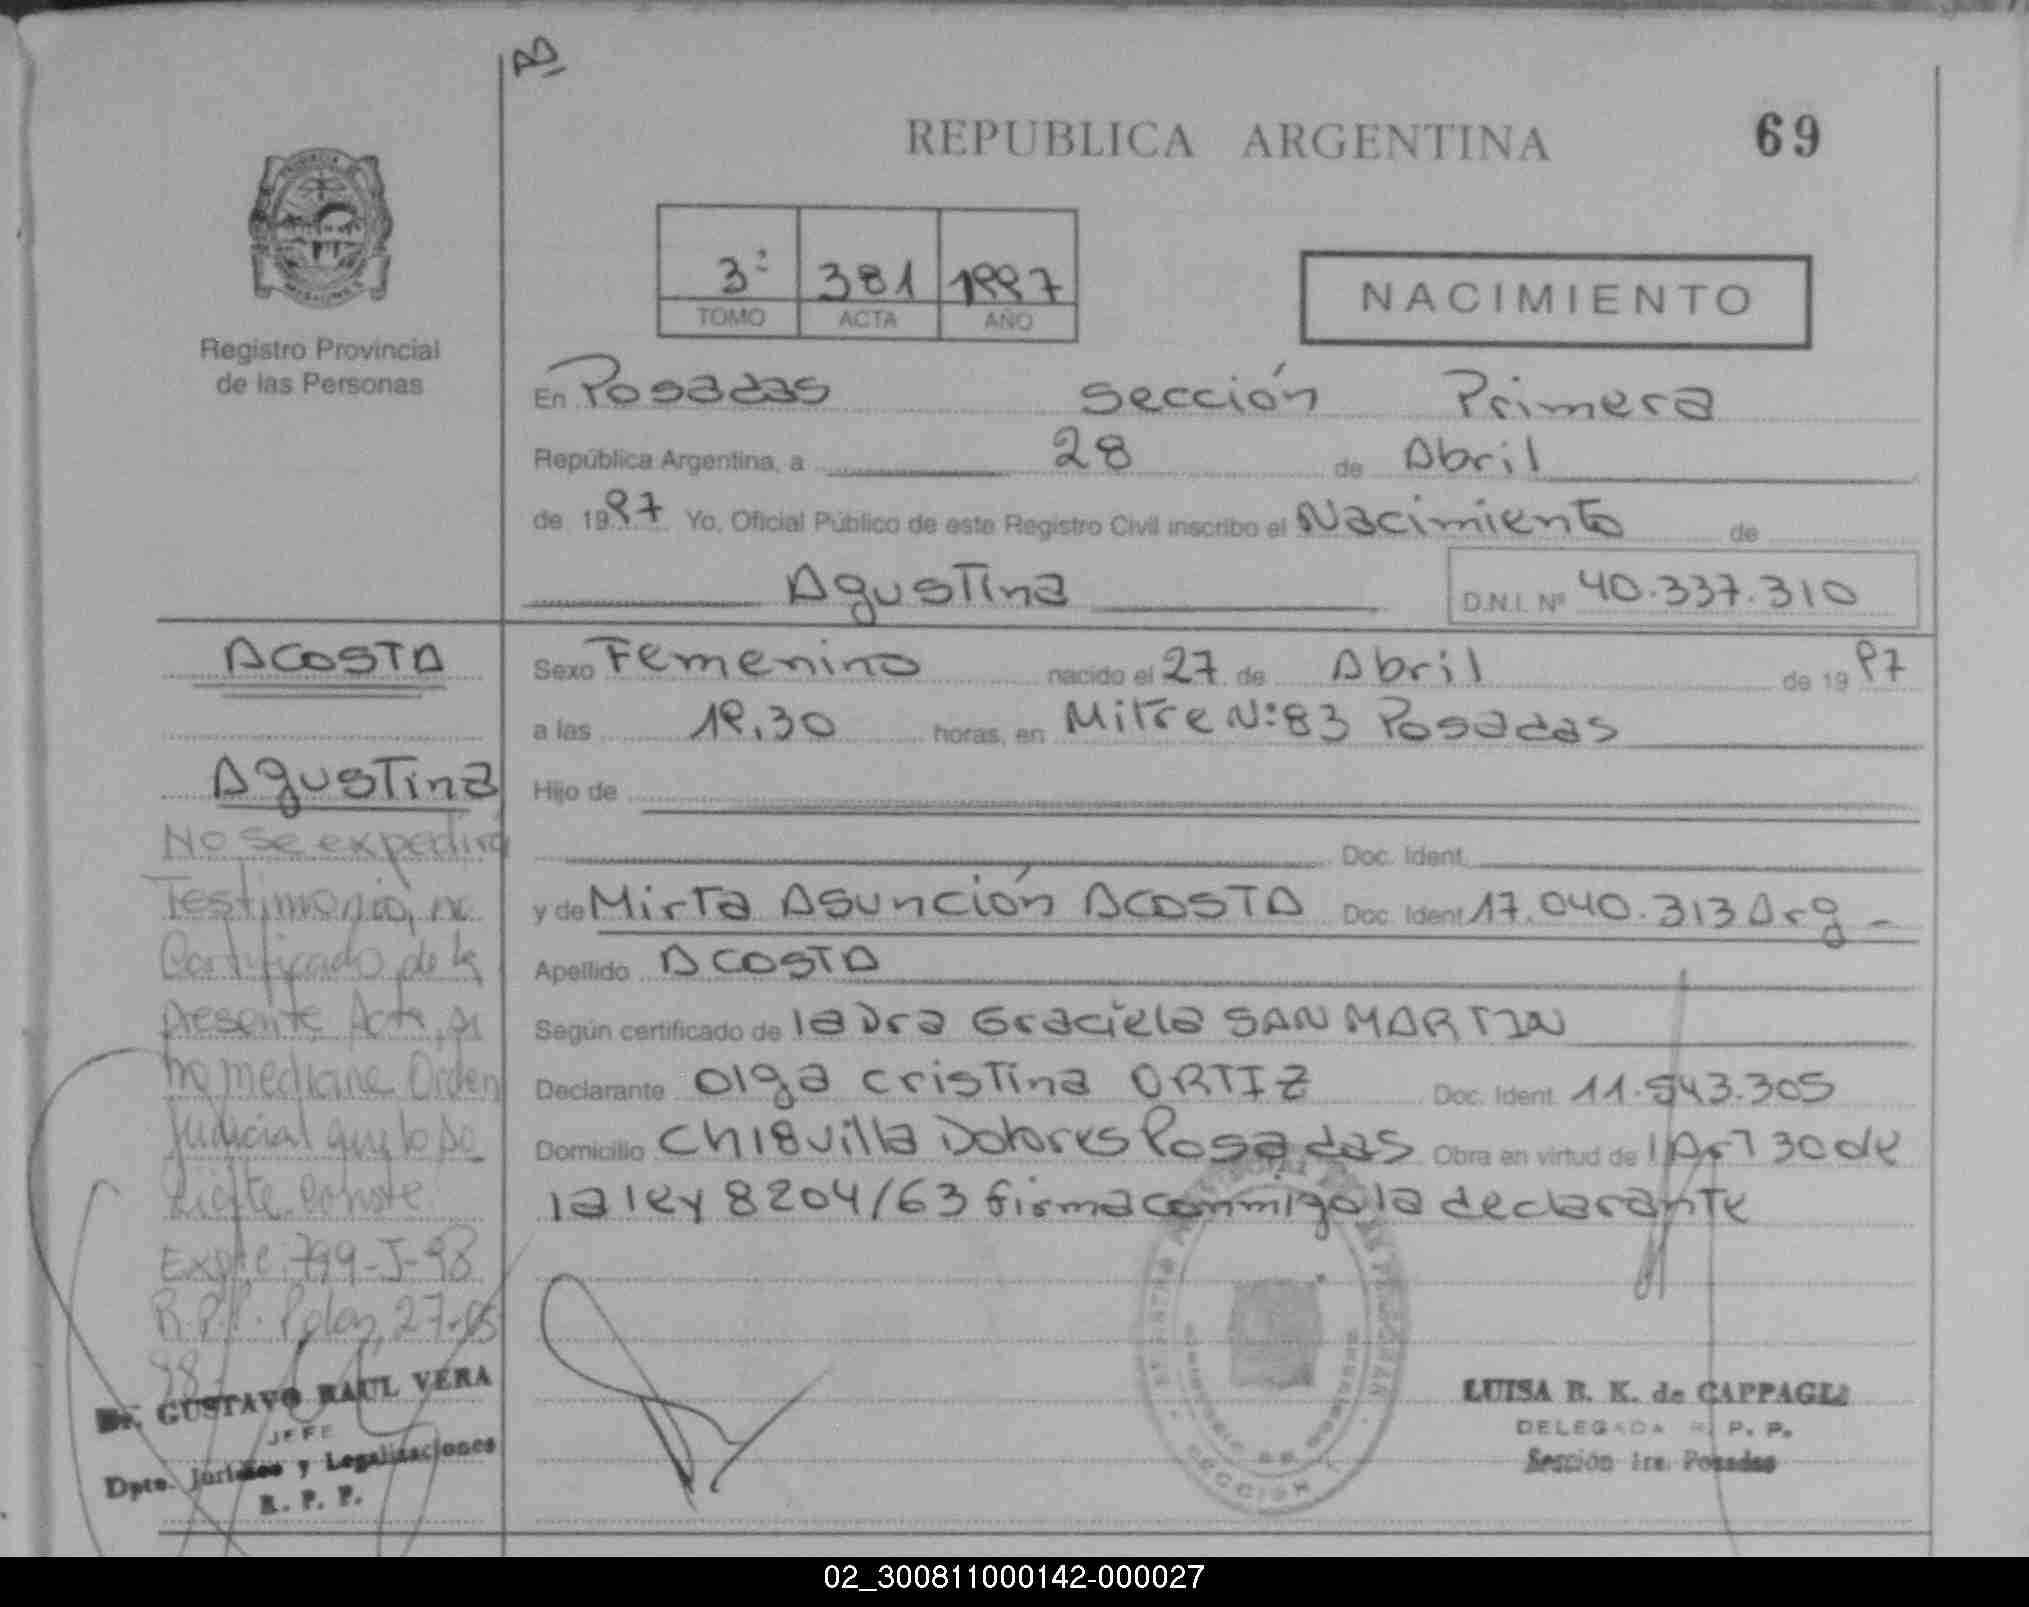 AD
REPUBLICA ARGENTINA
69
3º 381 1997
TOMO ACTA AÑO
NACIMIENTO
Registro Provincial
de las Personas
En Posadas sección Primera
República Argentina, a 28 de Abril
de 1997 Yo, Oficial Público de este Registro Civil inscribo el Nacimiento de
Agustina
D.N.I. Nº 40.337.310
ACOSTA
Agustina
Sexo Femenino nacido el 27 de Abril de 1997
a las 19.30 horas, en Mitre Nº 83 Posadas
Hijo de
Doc. Ident.
y de Mirta Asunción ACOSTA Doc. Ident. 17.040.313 Arg -
Apellido ACOSTA
Según certificado de la Dra Graciela SAN MARTIN
Declarante Olga Cristina ORTIZ Doc. Ident. 11.543.305
Domicilio Ch 18 villa Dolores Posadas Obra en virtud de l Art 30 de
la ley 8204/63 firma conmigo la declarante
No se expedirá
Testimonio, ni
Certificado de la
presente Acta, si
no mediante Orden
Judicial que lo so
licite. Conste.
Expte. 799-J-98
R.P.P. 27-05
98
Dr. GUSTAVO RAUL VERA
JEFE
Dpto. Jurídico y Legalizaciones
R. P. P.
LUISA B. K. de CAPPAGLI
DELEGADA R. P. P.
Sección 1ra. Posadas
SECCION 1
02_300811000142-000027